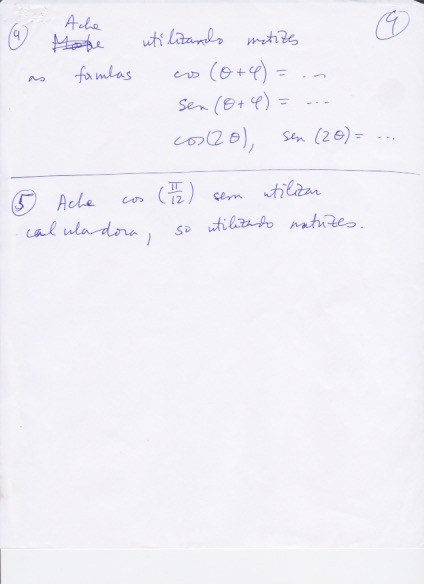 4
④ Ache utilizando matrizes
as fómulas cos (θ+φ) = ...
sen (θ+φ) = ...
cos(2θ), sen (2θ) = ...
⑤ Ache cos (π/12) sem utilizar
calculadora, so utilizado matrizes.